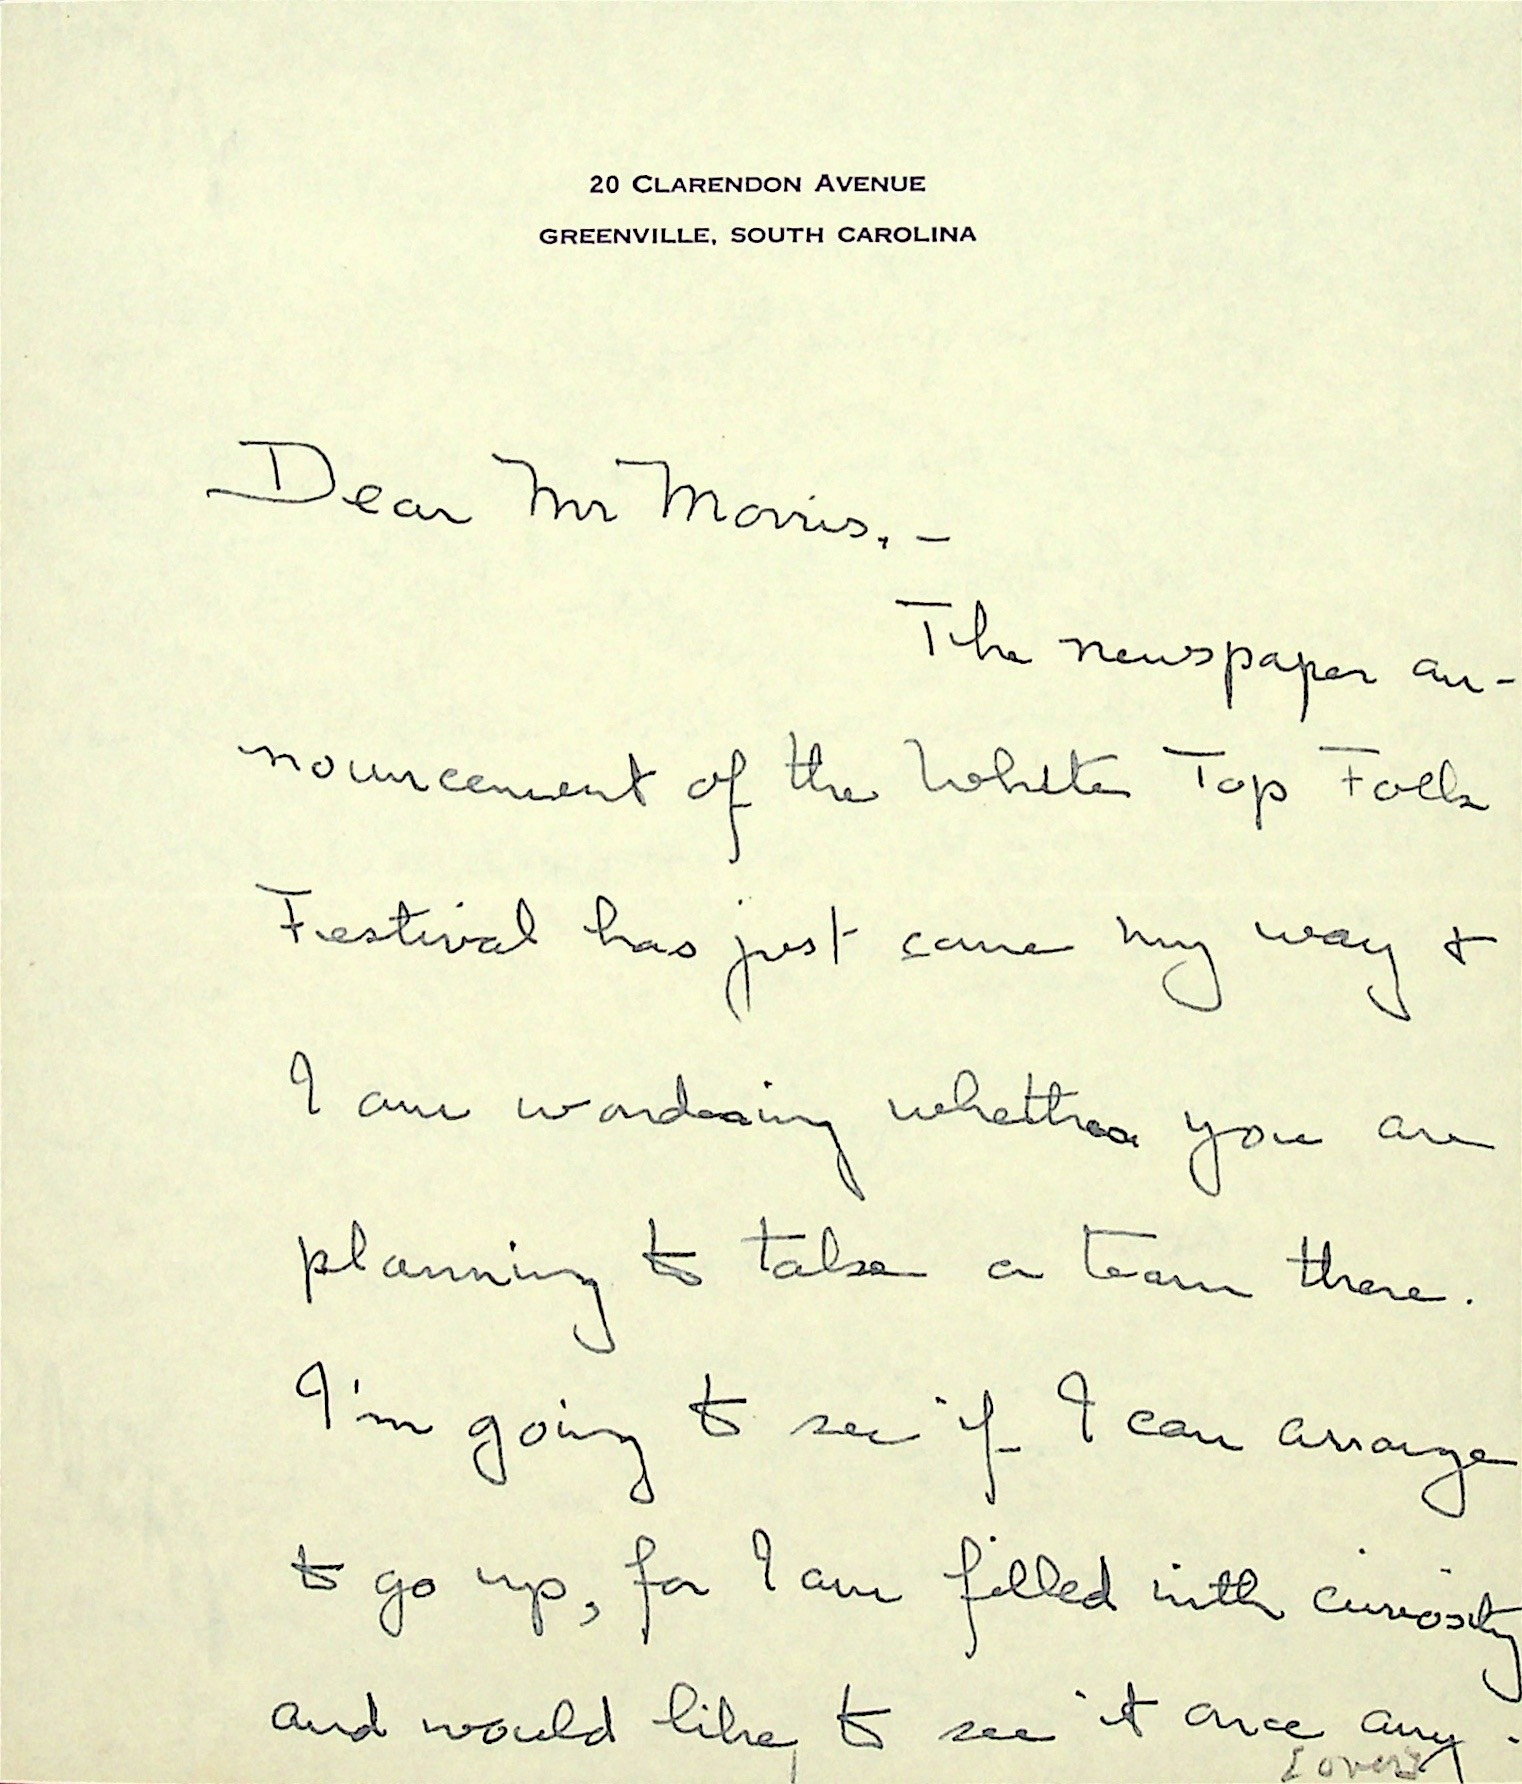 20 CLARENDON AVENUE
GREENVILLE, SOUTH CAROLINA
Dear Mr Morris, –
The newspaper an-
nouncement of the White Top Folk
Festival has just came my way &
I am wondering whether you are
planning to take a team there.
I'm going to see if I can arrange
to go up, for I am filled with curiosity
and would like to see it once any-
[over]